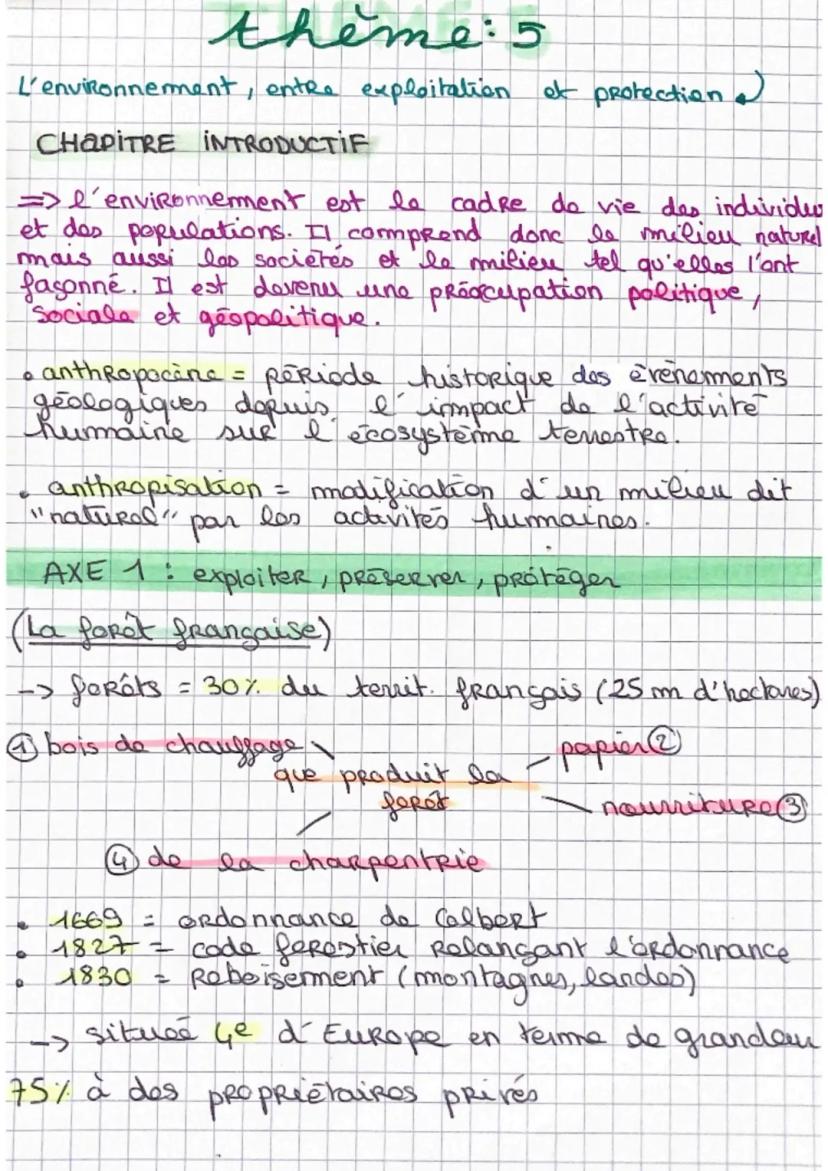 thème: 5
L'environnement, entre exploitation et protection
CHAPITRE INTRODUCTIF
=> l'environnement est le cadre de vie des individus
et des populations. Il comprend donc le milieu naturel
mais aussi les sociétés et le milieu tel qu'elles l'ont
façonné. Il est devenu une préocupation politique,
sociale et géopolitique.
• anthropocène = période historique des évènements
géologiques depuis l'impact de l'activité
humaine sur l'écosystème terrestre.
• anthropisation = modification d'un milieu dit
"naturel" par les activités humaines.
AXE 1 : exploiter, préserver, protéger
(La forêt française)
-> forêts = 30% du territ. français (25 m d'hectares)
① bois de chauffage
papier ②
que produit la
forêt
nourriture ③
④ de la charpentrie
• 1669 = ordonnance de Colbert
• 1827 = code forestier relançant l'ordonnance
• 1830 = Reboisement (montagnes, landes)
-> située 4e d'Europe en terme de grandeur
75% à des propriétaires privés